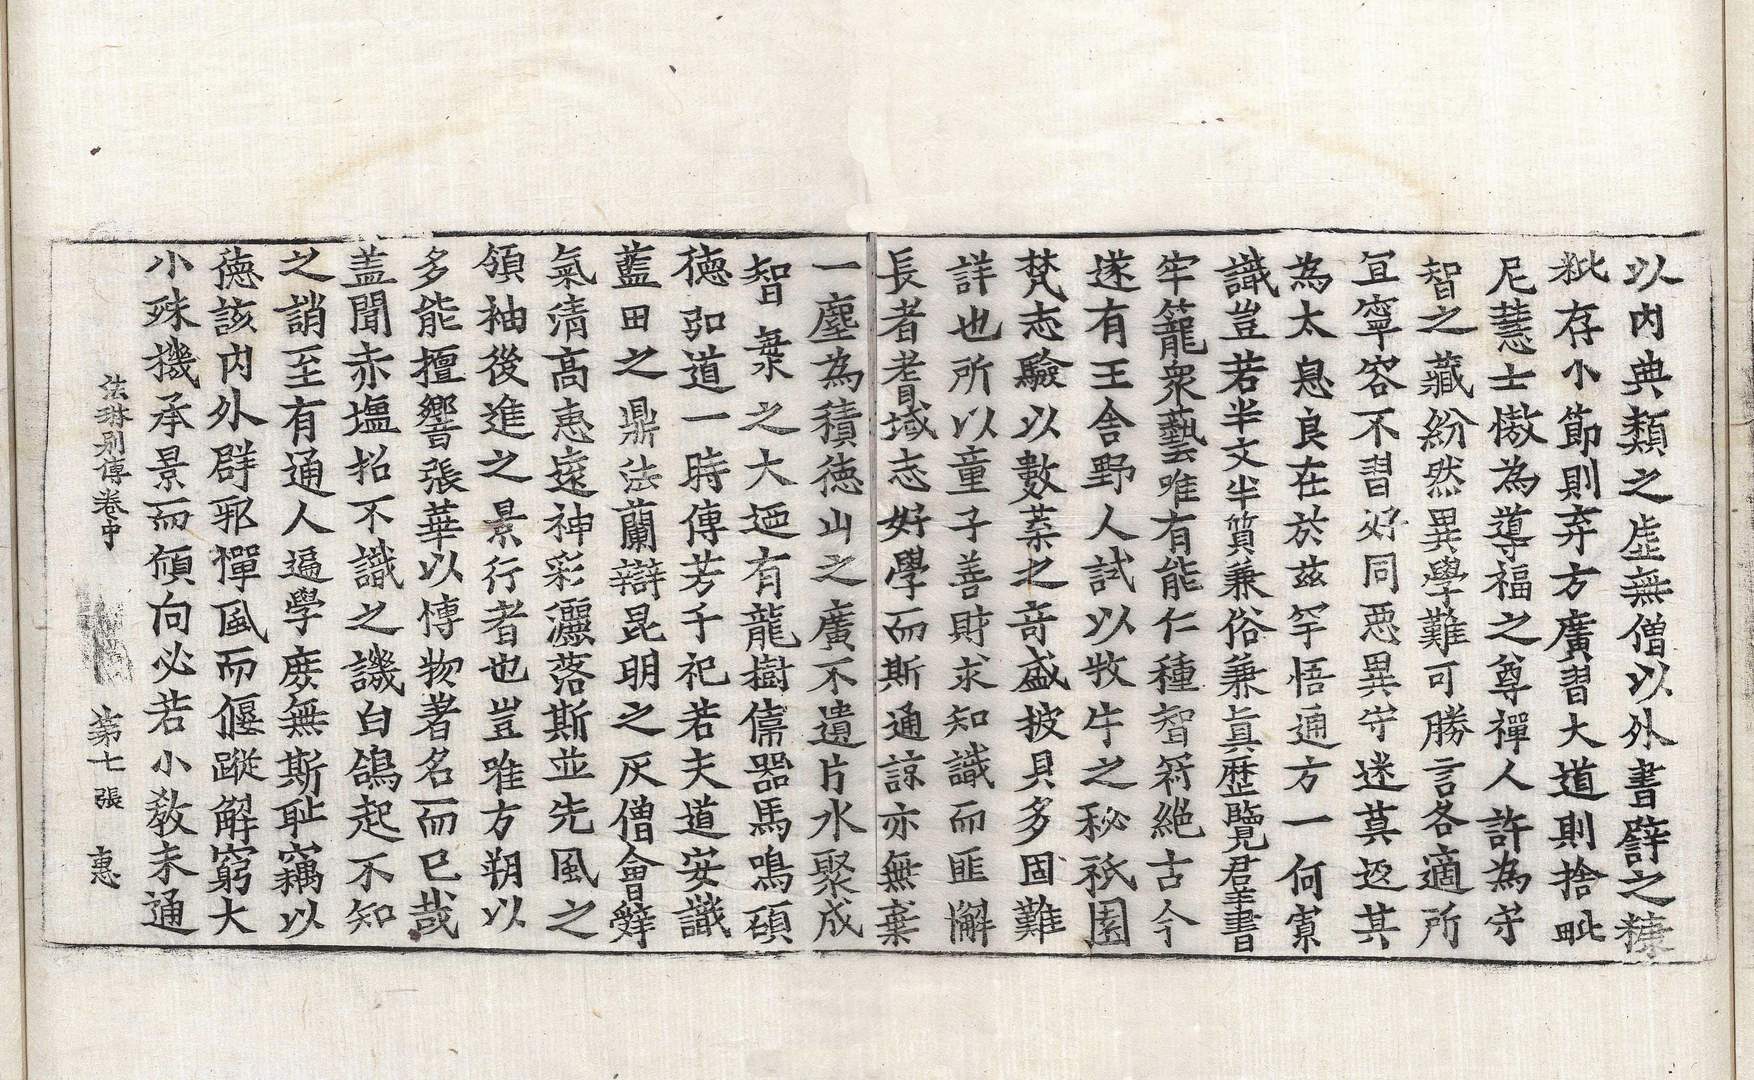 以內典類之虛無僧以外書譬之糠
粃存小節則弃方廣習大道則捨毗
尼慧士慠為導福之尊禪人許為守
智之藏紛然異學難可勝言各適所
冝寧容不習好同惡異守迷莫返其
為太息良在於兹罕悟通方一何寡
識豈若半文半質兼俗兼真歷覽羣書
牢籠衆藝唯有能仁種智符絕古今
遂有王舍野人試以牧牛之秘祇園
梵志驗以數葉之竒盛披貝多固難
詳也所以童子善財求知識而匪懈
長者耆域志好學而斯通諒亦無棄
一塵為積德山之廣不遺片水聚成
智之大迺有龍樹儒器馬鳴碩
德弘道一時傳芳千祀若夫道安識
藍田之鼎法蘭辯昆明之灰僧會辯
氣清高惠遠神彩灑落斯並先風之
領袖後進之景行者也豈唯方朔以
多能擅響張華以愽物著名而已哉
盖聞赤塩招不識之譏白鴿起不知
之誚至有通人遍學庶無斯耻竊以
德該內外辟邪憚風而偃蹤解窮大
小殊機承景而傾向必若小教未通
法琳別傳卷中 第七張 惠